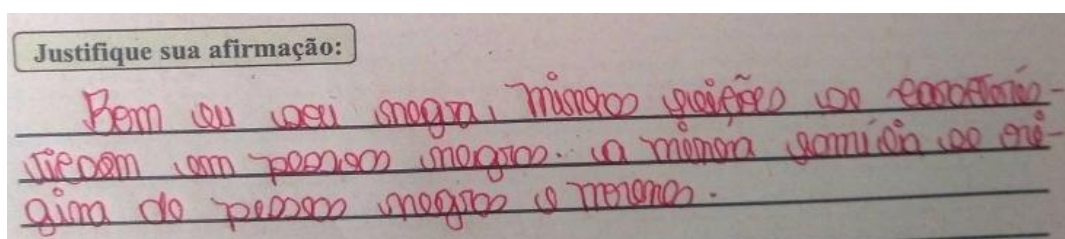 Justifique sua afirmação:
Bem eu sou negra, minhas feições se caracteris-
ticam em pessoas negras. a minha familia se ori-
gina de pessoas negras e morenas.